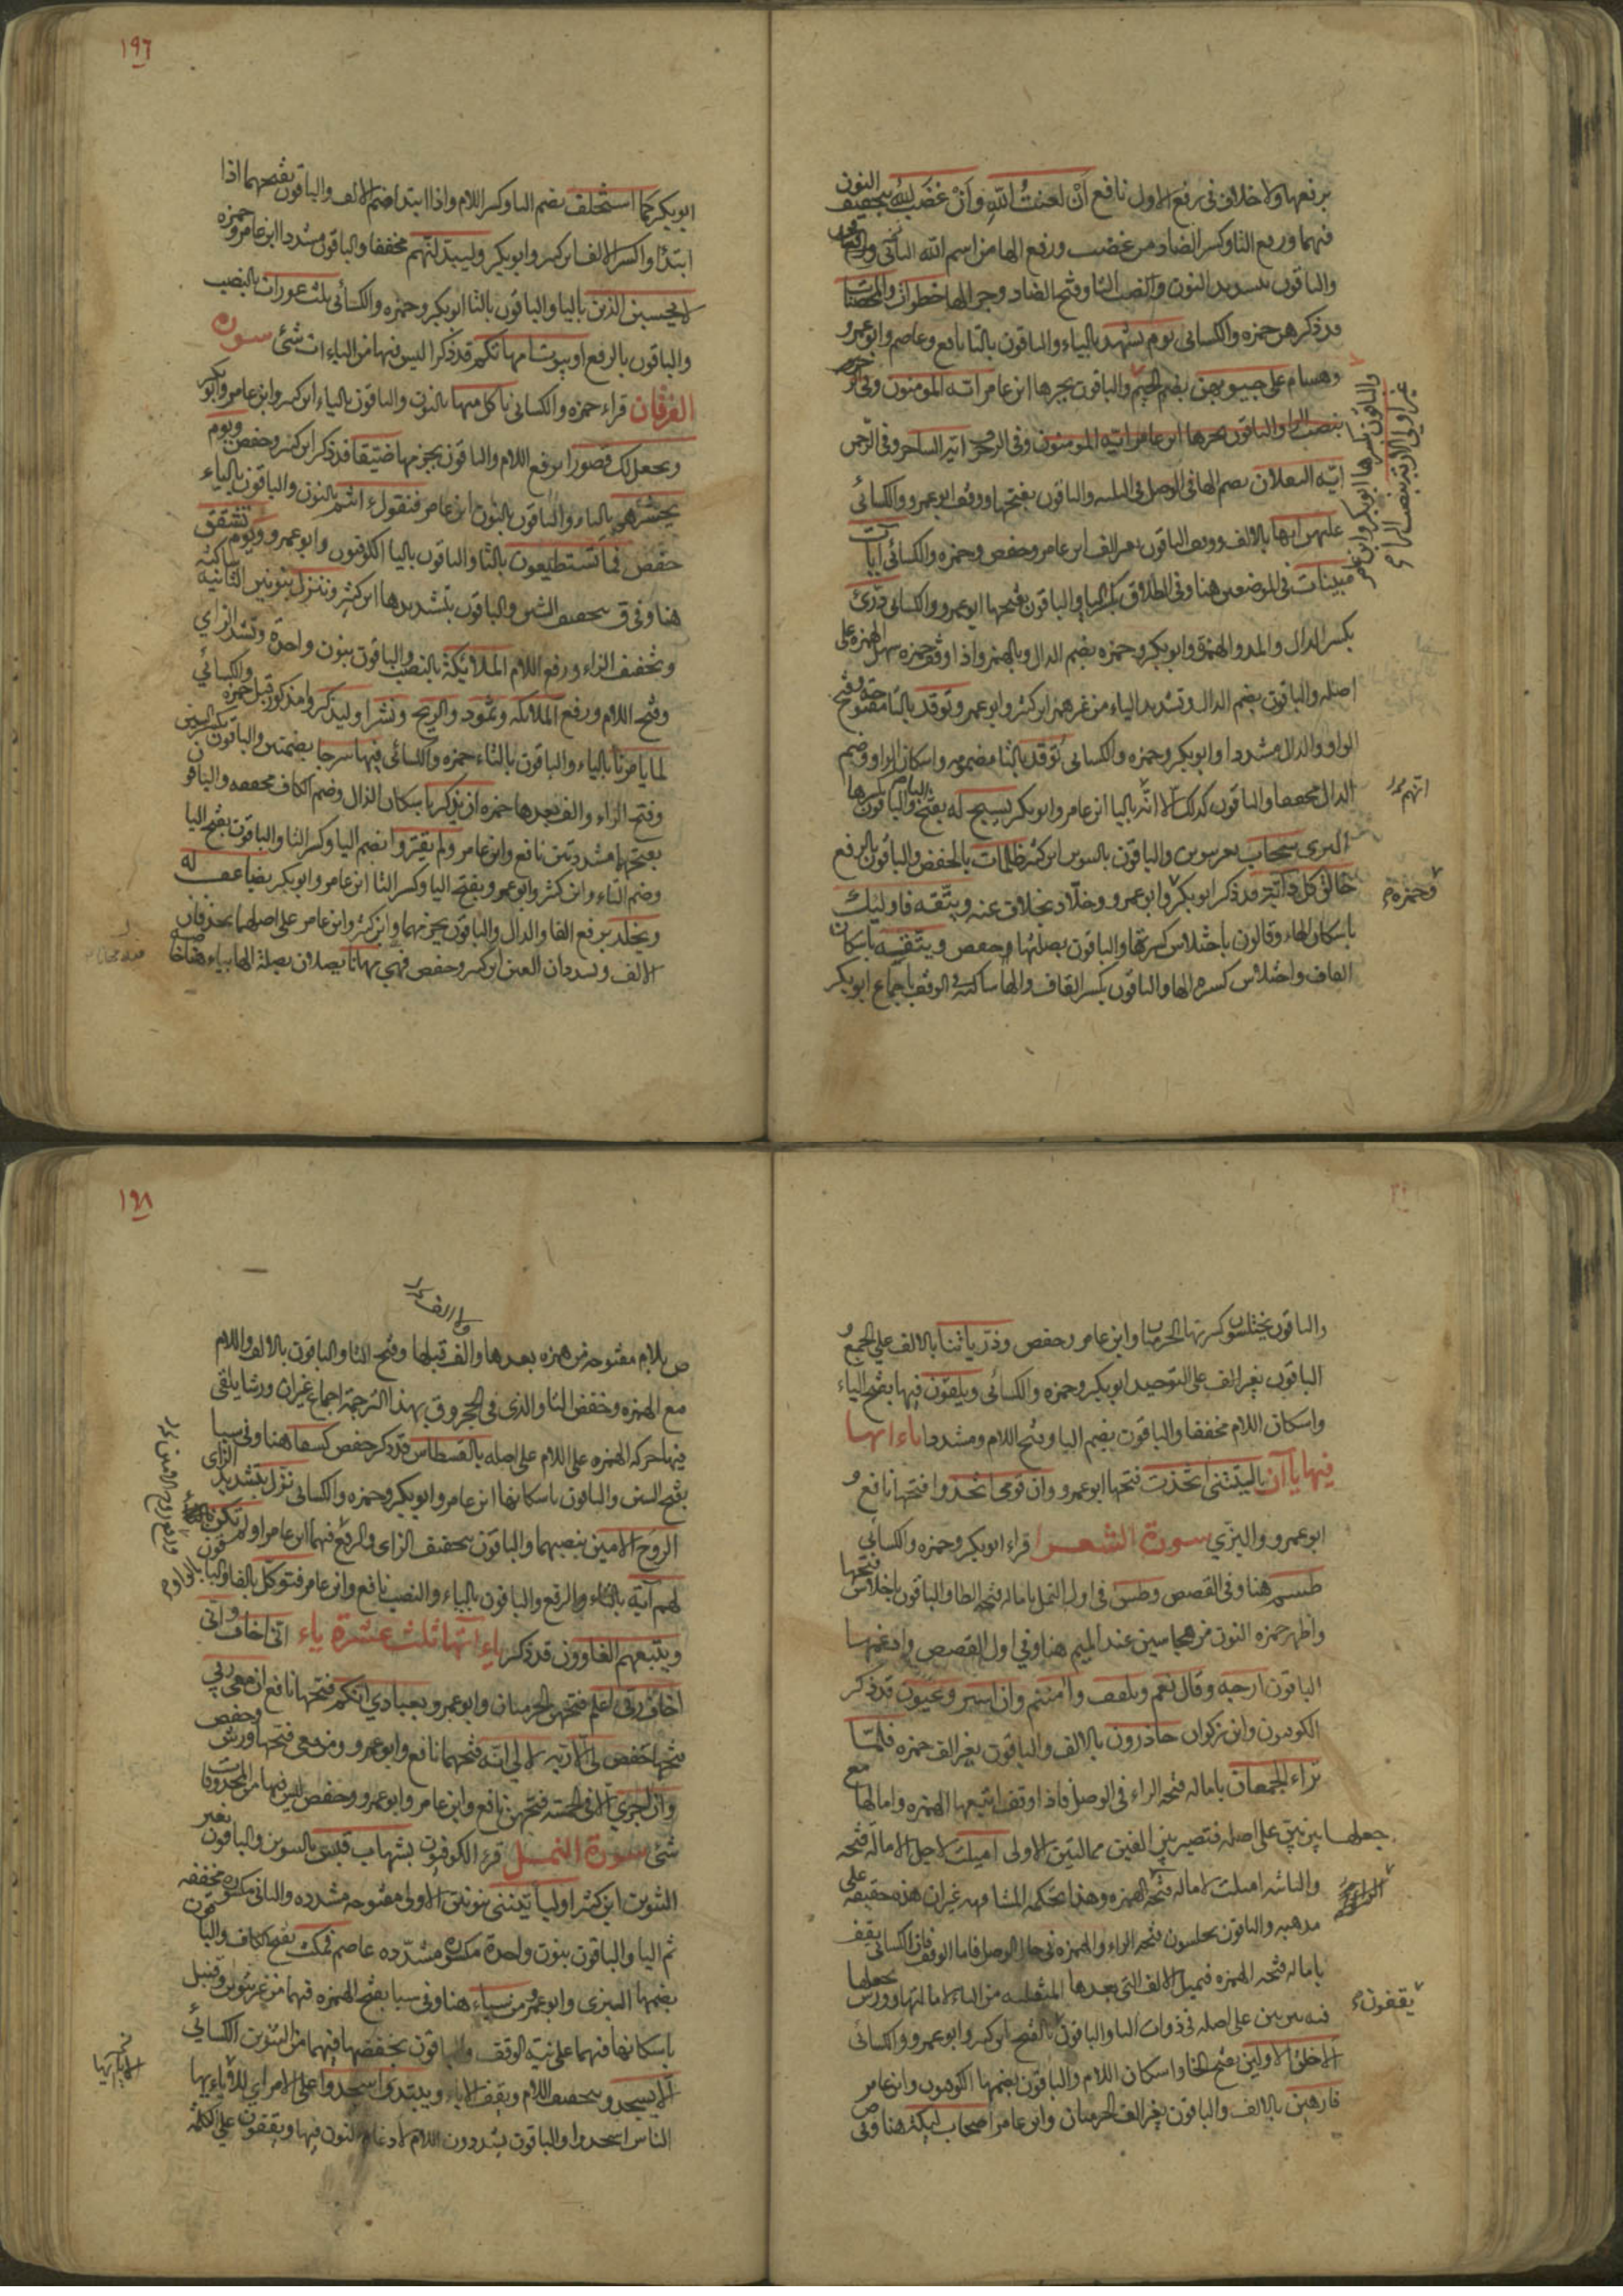 برفعها ولا خلاف فى رفع الاول نافع أن لعنتُ الله وأن غضب اللهُ بتخفيف النون
فيهما ورفع التا وكسر الضاد من غضب ورفع الها من اسم الله الثانى
والباقون بتشديد النون ونصب التا وفتح الضاد وجر الها خطوات والمحصنات
قد ذكر هن حمزه والكسائى يوم يشهد بالياء والباقون بالتا نافع وعاصم وابو عمرو
وهشام على جيوبهن بضم الجيم والباقون بجرها ابن عامر ايه المومنون وفى
بنصب الرا والباقون بجرها ابن عامر ايه المومنون وفى الزخرف ايه الساحر وفى الرحمن
ايه الثقلان بضم الها فى الوصل فى الثلثه والباقون بفتحها ووقف ابو عمرو والكسائى
عليهن ايها بالالف ووقف الباقون بغير الف ابن عامر وحفص وحمزه والكسائى آيات
مبينات فى الموضعين هنا وفى الطلاق بكسر اليا والباقون بفتحها ابو عمرو والكسائى درّئ
بكسر الدال والمد والهمزة وابو بكر وحمزه بضم الدال وبالهمز واذا وقف حمزه سهل الهمزه على
اصله والباقون بضم الدال وتشديد الياء من غير همز ابن كثير وابو عمرو توقد بالتا مفتوحة وفتح
الواو والدال مشددا وابو بكر وحمزه والكسائى توقد بالتا مضمومه واسكان الواو وضم
الدال مخففا والباقون كذلك الا انه باليا ابن عامر وابو بكر يسبح له بفتح الباء والباقون بكسرها
البزى سحاب بغير تنوين والباقون بالتنوين ابن كثير ظلمات بالخفض والباقون بالرفع
خالق كل دابّة قد ذكر ابو بكر وابو عمرو وخلاد بخلاف عنه ويتّقه فاوليك
باسكان الهاء وقالون باختلاس كسرتها والباقون بصلتها وحفص ويتقه باسكان
القاف واختلاس كسره الها والباقون بكسر القاف والها ساكنة فى الوقف باجماع ابو بكر
والباقون بكسرها ابو بكر وابن عامر
غير اولى الاربة بنصب الرا
وحمزه
١٩٦
ابو بكر كما استخلف بضم التا وكسر اللام واذا ابتدا ضم الالف والباقون بفتحهما اذا
ابتدئ وا كسر الالف ابن كثير وابو بكر وليبدلنّهم مخففا والباقون مشددا ابن عامر وحمزه
لا يحسبن الذين باليا والباقون بالتا ابو بكر وحمزه والكسائى ثلث عورات بالنصب
والباقون بالرفع او بيوت امهاتكم قد ذكرا ليس فيها من الياءات شئ سوره
الفرقان قراء حمزه والكسائى ناكل منها بالنون والباقون بالياء ابن كثير وابن عامر وابو بكر
ويجعل لك قصورا برفع اللام والباقون بجزمها ضيّقا قد ذكر ابن كثير وحفص ويوم
يحشرهم بالياء والباقون بالنون ابن عامر فنقول ءانتم بالنون والباقون بالياء
حفص فما تستطيعون بالتا والباقون باليا الكوفيون وابو عمرو ويوم تشقق
هنا وفى ق بتخفيف الشين والباقون بتشديدها ابن كثير وننزل بنونين الثانية ساكنة
وتخفيف الزاء ورفع اللام الملائكة بالنصب والباقون بنون واحدة وتشديد الزاي
وفتح اللام ورفع الملائكه وثمود والريح ونشرا وليذكروا مذكور قبل حمزه والكسائي
لما يامرنا بالياء والباقون بالتاء حمزه والكسائى فيها سرجا بضمتين والباقون بكسر السين
وفتح الراء والف بعدها حمزه ان يذكر باسكان الذال وضم الكاف مخففه والباقون
بفتحهما مشددتين نافع وابن عامر ولم يقتروا بضم اليا وكسر التا والباقون بفتح اليا
وضم التاء وابن كثير وابو عمرو بفتح اليا وكسر التا ابن عامر وابو بكر يضاعف له
ويخلد برفع الفا والدال والباقون بجزمهما وابن كثير وابن عامر على اصلهما يحذفان
الالف ويشددان العين ابن كثير وحفص فيهى مهانا يصلان بصلة الها بياء هنا خاصة
والباقون يختلسون كسرتها الحرميان وابن عامر وحفص وذرّياتنا بالالف على الجمع و
الباقون بغير الف على التوحيد ابو بكر وحمزه والكسائى ويلقون فيها بفتح الياء
واسكان اللام مخففا والباقون بضم اليا وفتح اللام ومشددا ياءاتها
فيها ياآن ياليتنى اتخذت فتحها ابو عمرو وان قومى اتخذوا فتحها نافع و
ابو عمرو والبزّي سورة الشعرا قراء ابو بكر وحمزه والكسائى
طسم هنا وفى القصص وطس فى اول النمل باماله فتحه الطا والباقون باخلاص فتحها
واظهر حمزه النون من هجا سين عند الميم هنا وفى اول القصص وادغمها
الباقون ارجه وقال نعم وتلقف وآمنتم وان اسر وعيون قد ذكر
الكوفيون وابن ذكوان حاذرون بالالف والباقون بغير الف حمزه فلمّا
تراء الجمعان باماله فتحه الراء فى الوصل فاذا وقف اتبعها الهمزه وامالها مع
جعلها بين بين على اصله فتصير بين الفين ممالتين الاولى اميلت لاجل الامالة فتحه
والثانيه اميلت لاماله فتحه الهمزه وهذا تحكمه المشافهه غير ان هذه حقيقة على
مذهبه والباقون يخلصون فتحه الراء والهمزه فى حال الوصل فاما الوقف فان الكسائى يقف
باماله فتحه الهمزه فيميل الالف التى بعدها المنقلبه من الياء لامالتها وورش يجعلها
فيه بين بين على اصله فى ذوات اليا والباقون بالفتح ابن كثير وابو عمرو والكسائى
الا خلق الاولين بفتح الخا واسكان اللام والباقون بضمها الكوفيون وابن عامر
فارهين بالالف والباقون بغير الف الحرميان وابن عامر اصحاب ليكة هنا وفى
يقفون
١٩٨
ص بلام مفتوحه من غير همزه بعدها ولا الف قبلها وفتح التا والباقون بالالف واللام
مع الهمزه وخفض التا والذى فى الحجر وق بهذا الترجمة اجماع غير ان ورشا يلقى
فيها حركه الهمزه على اللام على اصله بالقسطاس قد ذكر حفص كسفا هنا وفى سبا
بفتح السين والباقون باسكانها ابن عامر وابو بكر وحمزه والكسائى نزّل بتشديد الزاى
الروح الامين بنصبهما والباقون بتخفيف الزاى والرفع فيهما ابن عامر اولم تكن
لهم آية بالتاء والرفع والباقون بالياء والنصب نافع وابن عامر فتوكل بالفا والباقون بالواو
ويتبعهم الغاوون قد ذكر ياءاتها ثلث عشرة ياء انى اخاف وانى
اخاف ربى اعلم فتحهن الحرميان وابو عمرو بعبادي انكم فتحها نافع ان معى ربي
فتحها حفص لى الا رب الابى انه فتحهما نافع وابو عمرو ومن معى فتحها ورش وحفص
وان اجري الا فى الخمسه فتحهن نافع وابن عامر وابو عمرو وحفص ليس فيها من المحذوفات
شئ سورة النمل قرء الكوفيون بشهاب قبس بالتنوين والباقون بغير
التنوين ابن كثير او ليأتيننى بنونين الاولى مفتوحه مشدده والثانى مكسوره مخففه
ثم اليا والباقون بنون واحدة مكسوره مشدّده عاصم فمكث بفتح الكاف والباقون
بضمها البزى وابو عمرو من سباء هنا وفى سبا بفتح الهمزه فيهما من غير تنوين وقنبل
باسكانها فيهما على نية الوقف والباقون بخفضها فيهما مع التنوين الكسائي
ألا يسجدوا بتخفيف اللام ويقف الا يا ويبتدى اسجدوا على الامر اي الا يا ايها
الناس اسجدوا والباقون يشددون اللام لادغام النون فيها ويقفون على الكلمة